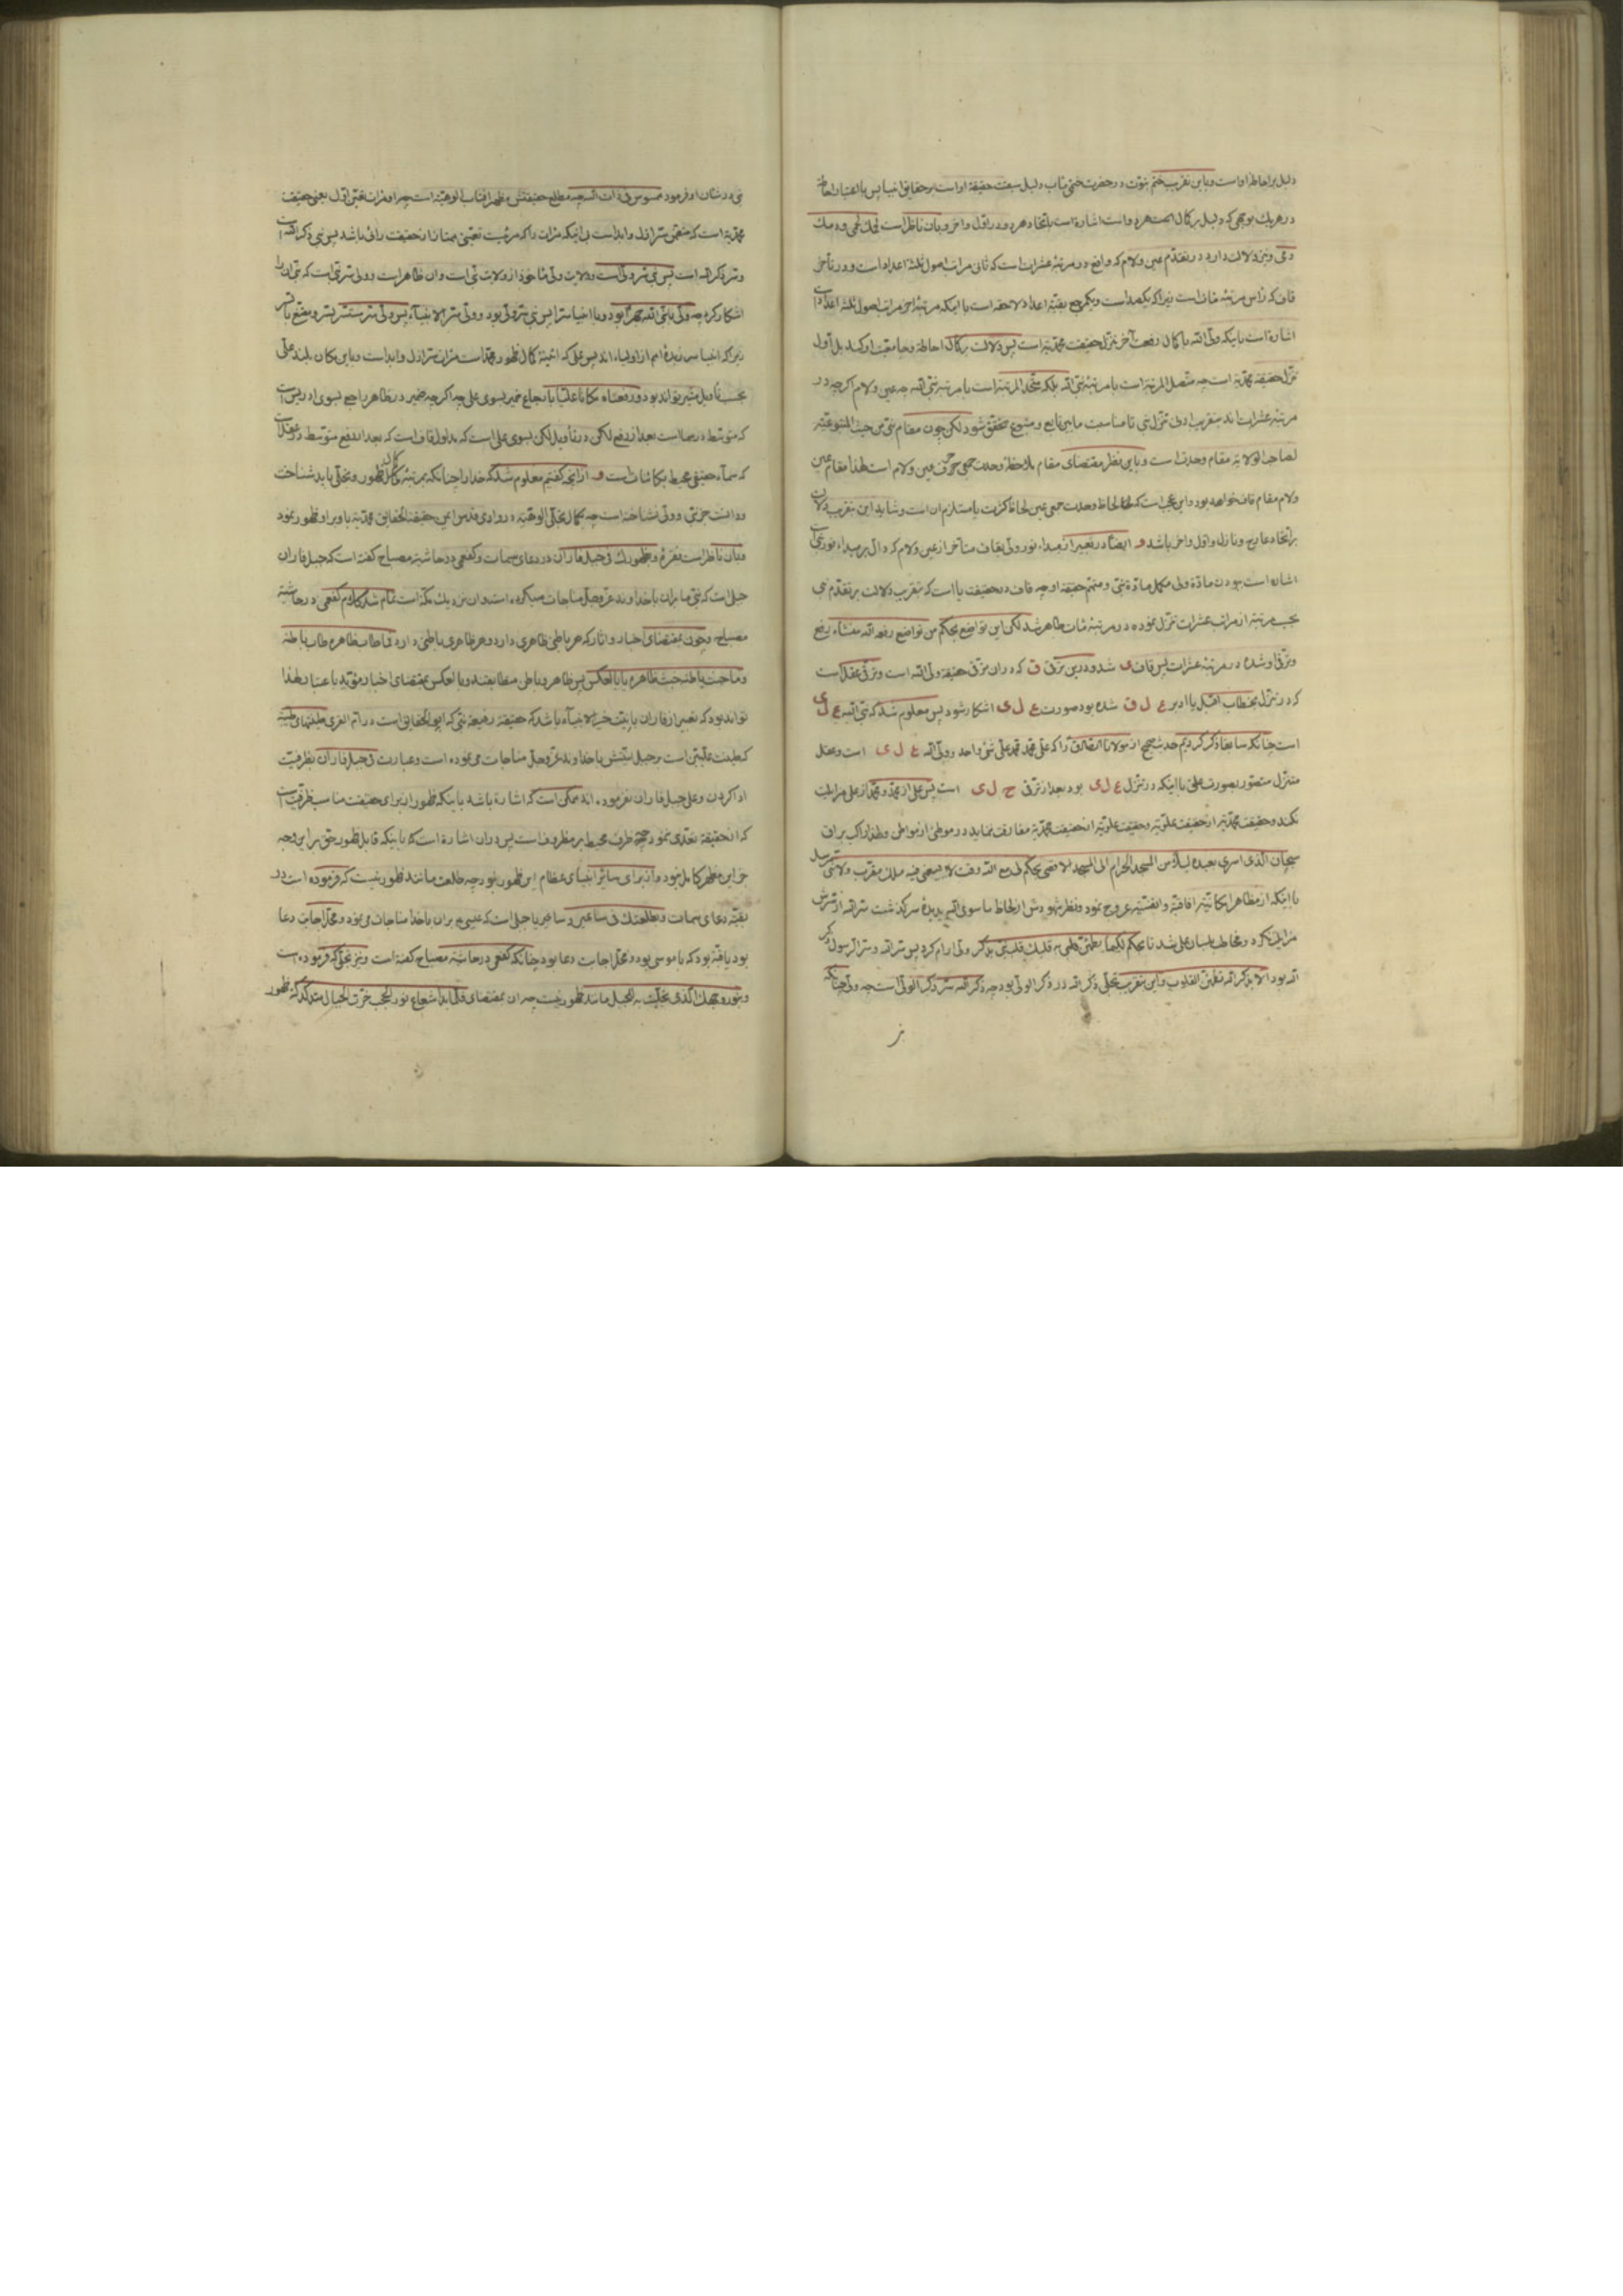 دلیل بر احاطهٔ او است و باین تقریب ختم نبوّت در حضرت ختمی‌مآب دلیل سبقت حقیقهٔ او است بر حقایق انبیا پس باعتبار احاطه
در هر یک بوجهی که دلیل بر کمال است اشاره است باتحاد هر دو در اوّل و آخر و بان ناظر است لحمک لحمی و دمک
دمی و نیز دلالت دارد در تقدّم عین و لام که واقع در مرتبهٔ عشرات است که ثانی مراتب اصول ثلثهٔ اعداد است و در تأخر
قاف که از این مرتبه مأة است زیرا که یکصد است و یکی مع بقیّه اعداد لاحقه است با اینکه مرتبهٔ اخر مراتب اصول ثلثهٔ اعداد است
اشاره است باینکه ولی الله با کمال رفعت آخر تنزل حقیقت محمدیّه است پس دلالت بر کمال احاطه و جامعیّت او کند بل اول
تنزل حقیقهٔ محمدیّه است چه متصل المرتبه است با مرتبهٔ نبی الله بلکه متحد المرتبه است با مرتبهٔ نبی الله چه عین و لام اگرچه در
مرتبهٔ عشرات اند بتقریب ادنی تنزل نبی تا مناسبت مابین تابع و متبوع متحقق شود لکن چون مقام نبی من حیث المتبوعیّه
لصاحب الولایه مقام وحدت است و باین نظر مقتضای مقام ملاحظهٔ وحدت جمعی حرف عین و لام است لهذا مقام عین
و لام مقام قاف خواهد بود و این عجب است که لحاظ وحدت جمعی عین لحاظ کثرت یا مستلزم ان است و شاید این بتقریب دلالت
بر اتحاد عارج و نازل و اول و اخر باشد و ایضاً در تعبیر از مبداء نور ولی بقاف متأخر از عین و لام که دال بر مبداء نور نبی است
اشاره است بودن مادّهٔ ولی مکمل مادّهٔ نبی و متمم حقیقهٔ او چه قاف در حقیقت یا است که بتقریب دلالت بر تقدّم نبی
بحسب مرتبه از مراتب عشرات تنزل نموده در مرتبهٔ مأت ظاهر شد لکن این تواضع بحکم من تواضع رفعه الله منشاء رفع
و ترقی او شده در مرتبهٔ عشرات پس قاف ی شد و در این ترقی ق که در ان ترقی حقیقهٔ ولی الله است و ترقی عقل است
که در تنزل بخطاب اقبل یا ادبر ع ل ق شده بود صورت ع ل ی اشکار شود پس معلوم شد که نبی الله ع ل ی
است چنانکه سابقا ذکر کردیم حدیث صحیح از مولانا الصادق را که علی محمد محمد علی شیء واحد و ولی الله ع ل ی است و عقل
متنزل متصور بصورت علی با اینکه در تنزل ع ل ی بود بعد از ترقی ع ل ی است پس علی از محمد و محمد از علی مزایلت
نکند و حقیقت محمدیّه از حقیقت علویّه و حقیقت علویّه از حقیقت محمدیّه مفارقت ننماید در موطنی از مواطن و لهذا راکب براق
سبحان الذی اسری بعبده لیلا من المسجد الحرام الی المسجد الاقصی بحکم لی مع الله وقت لا یسعنی فیه ملک مقرب ولا نبی مرسل
با اینکه از مظاهر امکانیّه افاقیه و انفسیّه عروج نمود و نظر شهودش از لحاظ ما سوی الله بدیدهٔ سر گذشت سر الله از سرش
مزایلت نکرد و مخاطب بلسان علی شد تا بحکم لکیما یطمئن قلبی به قلبک قلبش بذکر ولی ارام کرد پس سر الله و سر الرسول ذکر
الله بود الا بذکر الله تطمئن القلوب و این بتقریب تجلی ذکر الله در ذکر الولی بود چه ذکر الله سر ذکر الولی است چه ولی چنانکه
نبی در شان او فرمود ممسوس فی ذات الله چه مطلع حقیقتش مظهر افتاب الوهیّه است چه او مرات تعین اول یعنی حقیقت
محمدیّه است که متعین بتعین سر ازل و ابد است بی اینکه مرات را که مرئیت تعینی ممتاز از حقیقت رائی باشد پس نبی ذکر الله است
و سر ذکر الله است پس نبی سر ولی است و ولایت ولی ماخوذ از ولایت نبی است و ان ظاهر است و ولی سر نبی است که نبی ان را
اشکار کرد چه ولی با نبی الله جهراً بود و با انبیا سرا پس نبی سر ولی بود و ولی سر الانبیاء پس ولی سر مستتر بسر و مقنع بالسر
زیرا که انبیا سر زبدهٔ امم از اولیاء اند پس علی که ائینهٔ کمال ظهور محمد است مرات سر ازل و ابد است و باین مکان بلند علی
بحسب تأویل مشیر تواند بود و رفعناه مکانا علیا بارجاع ضمیر بسوی علی چه اگرچه ضمیر در ظاهر راجع بسوی ادریس است
که متوسط در سما است بعد از رفع لکن در تأویل لکن بسوی علی است که مدلول قاف است که بعد از رفع متوسط در عقل است
که سماء حقیقی محیط بکائنات است و از انچه گفتیم معلوم شد که خدا را چنانکه بمرتبهٔ کمال ظهور و تجلی باید شناخت
و دانست جز نبی و ولی نشناخته است چه بکمال تجلی الوهیّه در وادی قدس ایمن حقیقة الحقایق محمدیّه با و برا و ظهور نمود
و بان ناظر است فقرهٔ و بظهورک فی جبل فاران در دعای سمات و کفعمی در حاشیهٔ مصباح گفته است که جبل فاران
جبلی است که نبی ما بران با خداوند عز و جل مناجات میکرده است و ان نزدیک مکه است تمام شد کلام کفعمی در حاشیهٔ
مصباح و چون بمقتضای اخبار و اثار که هر باطنی ظاهری دارد و هر ظاهری باطنی دارد فما طاب ظاهره طاب باطنه
و ما خبث باطنه خبث ظاهره یا بالعکس پس ظاهر و باطن مطابقند و بالعکس بمقتضای اخبار مؤید باعتبار لهذا
تواند بود که تعبیر از فاران بانیت خیر الانبیاء باشد که حقیقهٔ رفیعهٔ نبی که ابو الحقایق است در ام القری طینتهای طیبه
که طینت علیین است بر جبل انیتش با خداوند عز و جل مناجات می نموده است و عبارت فی جبل فاران بظرفیت
ادا کردن و علی جبل فاران نفرموده اند ممکن است که اشاره باشد باینکه ظهور ان برای حقیقت مناسب ظرفیت است
که از حقیقهٔ تعدی ننمود چه ظرف محیط بر مظروف است پس در ان اشاره است که باینکه قابل ظهور حق بر این وجه
جز این مظهر کامل نبود و از برای سائر انبیای عظام این ظهور نبود چه طلعت مانند ظهور نیست که فرموده است در
بقیّه دعای سمات و بطلعتک فی ساعیر و ساعیر یا جبلی است که عیسی بران با خدا مناجات می نمود و محل اجابت دعا
بود یا قبه بود که با موسی بود و محل اجابت دعا بود چنانکه کفعمی در حاشیهٔ مصباح گفته است و نیز تجلی که فرموده است
و بنور وجهک الذی تجلیت به للجبل مانند ظهور نیست چه ان بمقتضای فلما بدا شعاع نور الحجب خرت الجبال متدکدکه ظهور